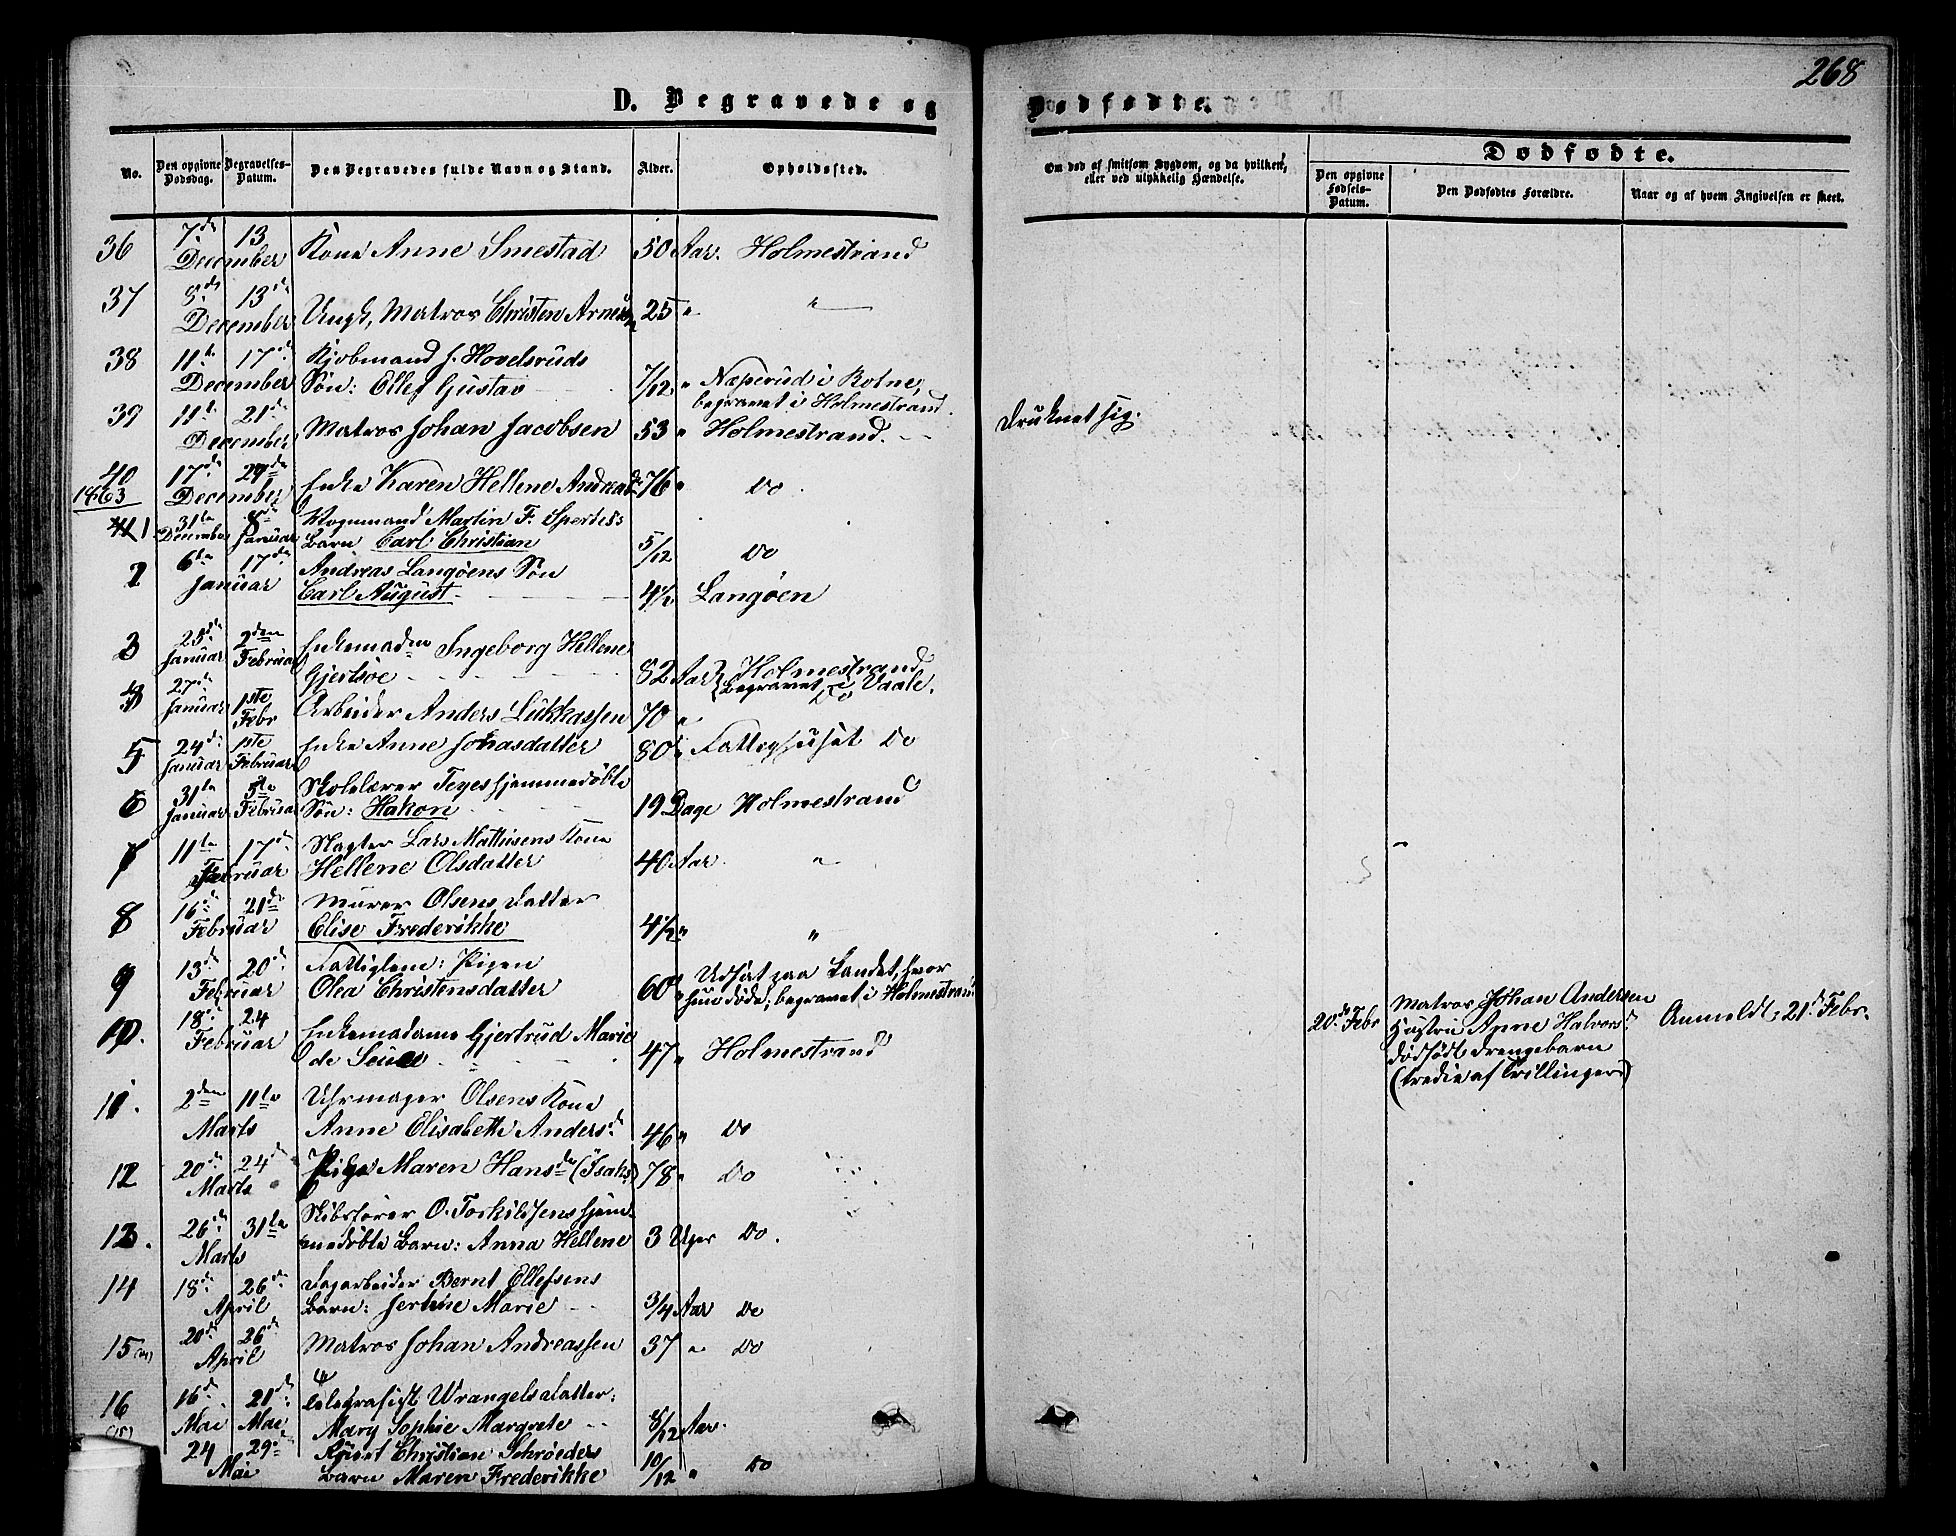 268
D. Begravede og
Dødfødte.
No. Den opgivne Dødsdag. Begravelses-Datum. Den Begravedes fulde Navn og Stand. Alder. Opholdssted.
Om død af smitsom Sygdom, og da hvilken, eller ved ulykkelig Hændelse.
Dødfødte.
Den opgivne Fødsels-Datum. Den Dødfødtes Forældre. Naar og af hvem Angivelsen er skeet.
36 7de 13 Kone Anne Smestad 50 Aar. Holmestrand
December
37 8de 13de
December Ungk. Matros Christen Arnesen 25 " "
38 11te 17de Kjøbmand J. Hovelsruds
December Søn: Ellef Gustav 7/12 " Næperud i Botne,
begravet i Holmestrand.
39 11te 21de Matros Johan Jacobsen 53 " Holmestrand.
December
Druknet sig.
40 17de 29de Enke Karen Hellene Andreasd. 76 " Do.
1863 December
1 31te 8de Vognmand Martin F.
December Januar Barn Carl Christian 5/12 Do
2 6te 17de Andreas Langøens Søn
Januar Carl August 4 1/2 Langøen
3 25de 2den Enkemaden Ingeborg Hellene
Januar Februar Gjertsøe 82 Aar Holmestrand
begravet i Vaale.
27de 1ste Do
Januar Febr Arbeider Anders Lukkassen 70 "
5 24de 1ste Enke Anne Johasdatter 80 " Fattighuset Do
Januar Februar
6 31te 5te Skolelærer Teges hjemmedøbte
Januar Februar Søn: Hakon 19 Dage Holmestrand
7 11te 17de Slagter Lars Mathisens Kone
Februar Hellene Olsdatter 40 Aar "
8 16de 21de Murer Olsens Datter
Februar Elise Frederikke 4 1/2 " "
9 13de 20de Fattiglem: Pigen
Februar Olea Christensdatter 60 " Udsat paa Landet, hvor
hun døde; begravet i Holmestrand
10. 18de 24 Enkemadame Gjertrud Marie
Februar de Seue 47 " Holmestrand
20de Febr Matros Johan Andersen
Hustru Anne Halvorsd.
dødfødt Drengebarn
(tredie af Trillinger)
Anmeldt, 21de Febr.
11. 2den 11te Uhrmager Olsens Kone
Marts Anne Elisabeth Andersd. 46 " Do
12 20de 24de Pige Maren Hansd. (Isaks) 78 " Do
Marts
13. 26de 31te Skibsfører O. Torkildsens hjem-
Marts medøbte Barn: Anna Hellene 3 Uger Do.
14 18de 26de Dagarbeider Bernt Ellefsens
April Barn: Marie 3/4 Aar Do
15 20de 26de Matros Johan Andreassen 37 " Do
April
16 16de 21de Telegrafist Wrangels Datter:
Mai Mai Mary Sophie Margrete 8/12 Aar.
24 29de Christian Schrøeders
Mai Barn Maren Frederikke 10/12 " Do